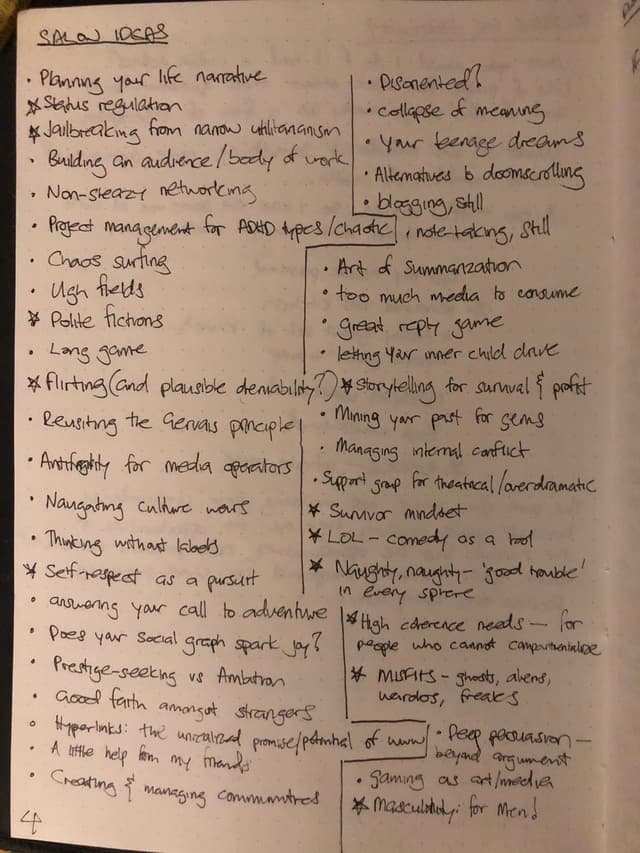 SALON IDEAS
· Planning your life narrative
☆ Status regulation
☆ Jailbreaking from narrow utilitarianism
· Building an audience/body of work
· Non-sleazy networking
· Project management for ADHD types/chaotic
· Chaos surfing
· Ugh fields
☆ Polite fictions
· Long game
☆ Flirting (and plausible deniability?)
· Revisiting the Gervais principle
· Antifragility for media operators
· Navigating culture wars
· Thinking without labels
☆ Self-respect as a pursuit
· answering your call to adventure
· Does your social graph spark joy?
· Prestige-seeking vs Ambition
· Good faith amongst strangers
· Hyperlinks: the unrealized promise/potential of www
· A little help from my friends
· Creating & managing communities
· Disoriented?
· collapse of meaning
· Your teenage dreams
· Alternatives to doomscrolling
· blogging, still
· note-taking, still
· Art of summarization
· too much media to consume
· great reply game
· letting your inner child drive
☆ Storytelling for survival & profit
· Mining your past for gems
· Managing internal conflict
· Support group for theatrical/overdramatic
☆ Survivor mindset
☆ LOL – comedy as a tool
☆ Naughty, naughty – 'good trouble'
in every sphere
☆ High coherence needs – for
people who cannot compartmentalize
☆ MISFITS – ghosts, aliens,
weirdos, freaks
· Deep persuasion –
beyond argument
· gaming as art/media
☆ Masculinity: for Men!
4